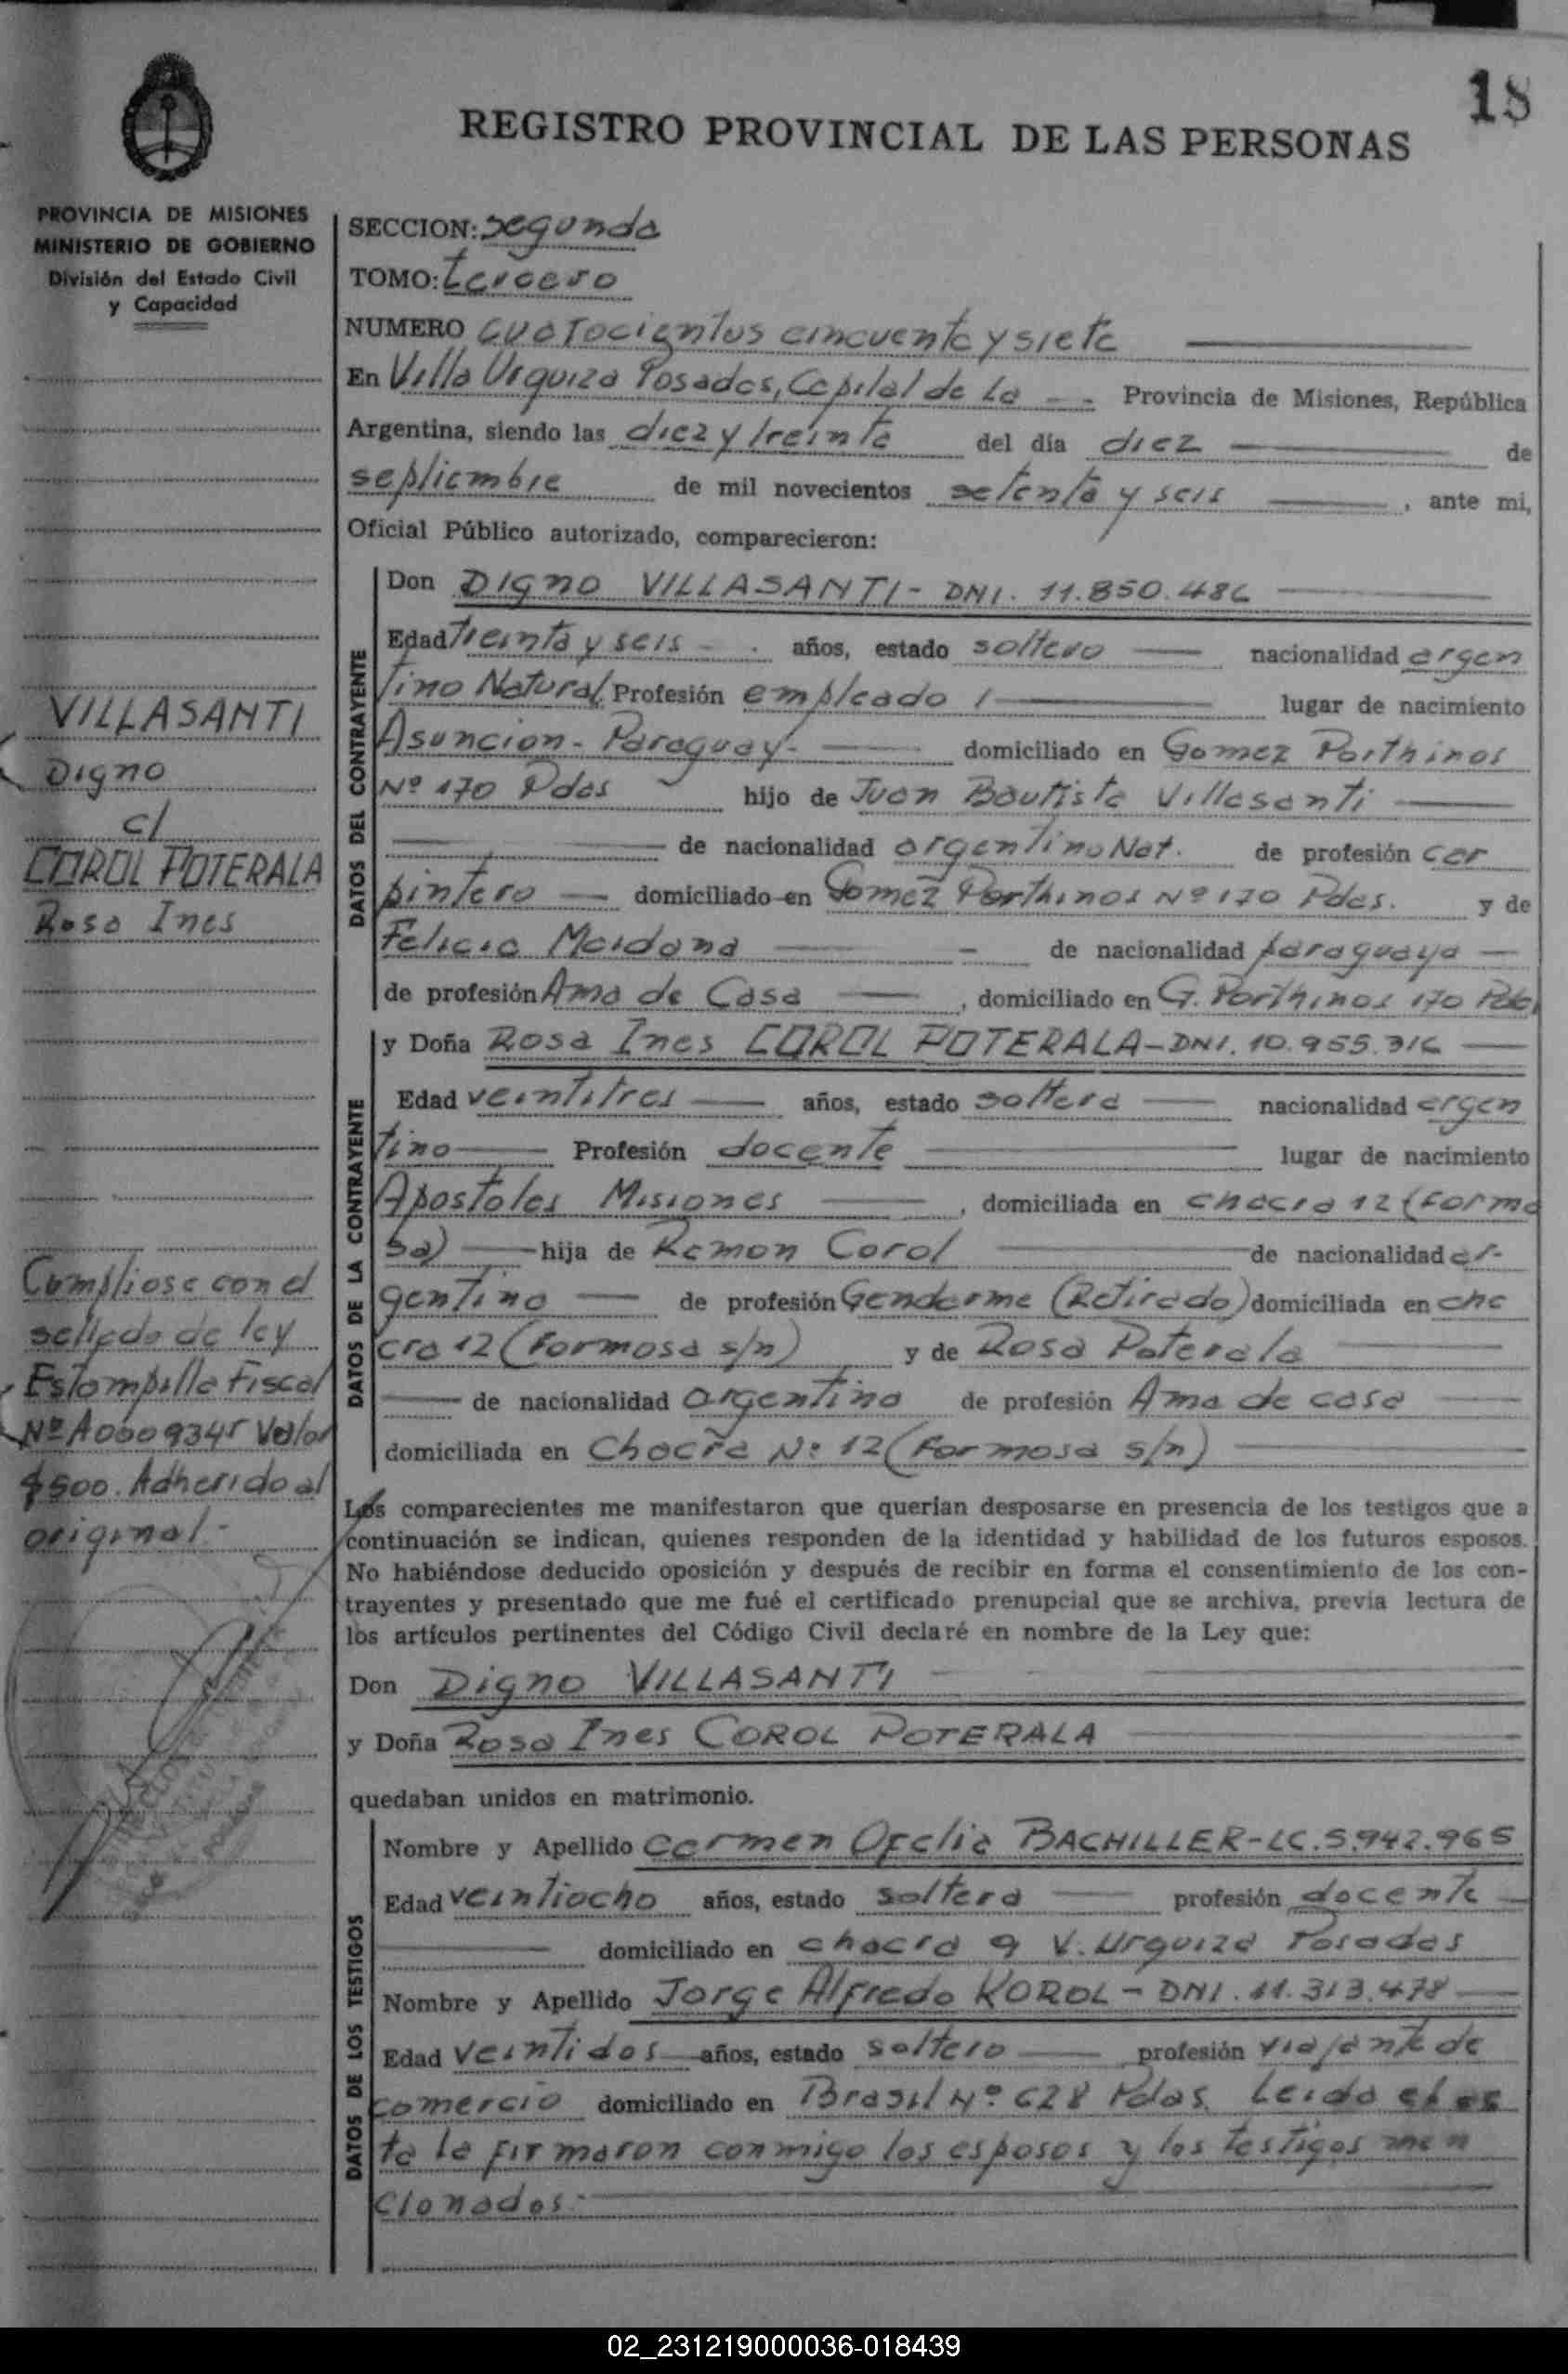 18
REGISTRO PROVINCIAL DE LAS PERSONAS
PROVINCIA DE MISIONES
MINISTERIO DE GOBIERNO
División del Estado Civil
y Capacidad
VILLASANTI
Digno
c/
COROL POTERALA
Rosa Ines
Cumpliose con el
sellado de ley
Estampilla Fiscal
Nº A0009345 Valor
$500. Adherido al
original.-
SECCION: segunda
TOMO: tercero
NUMERO cuatocientos cincuenta y siete
En Villa Urquiza Posadas, Capital de la - - Provincia de Misiones, República
Argentina, siendo las diez y treinta del día diez de
septiembre de mil novecientos setenta y seis , ante mi,
Oficial Público autorizado, comparecieron:
DATOS DEL CONTRAYENTE
Don Digno VILLASANTI - DNI. 11.850.486
Edad treinta y seis - . años, estado soltero nacionalidad argen
tino Natural. Profesión empleado lugar de nacimiento
Asuncion - Paraguay - domiciliado en Gomez Porthinos
Nº 170 Pdas hijo de Juan Bautista Villasanti
de nacionalidad argentino Nat. de profesión car
pintero domiciliado en Gomez Porthinos Nº 170 Pdas. y de
Felicia Maidana - de nacionalidad paraguaya
de profesión Ama de Casa , domiciliado en G. Porthinos 170 Pdas
DATOS DE LA CONTRAYENTE
y Doña Rosa Ines COROL POTERALA - DNI. 10.955.316
Edad veintitres años, estado soltera nacionalidad argen
tino Profesión docente lugar de nacimiento
Apostoles Misiones , domiciliada en chacra 12 (Formo
sa) hija de Ramon Corol de nacionalidad ar-
gentino de profesión Gendarme (Retirado) domiciliada en cha
cra 12 (Formosa s/n) y de Rosa Poterala
de nacionalidad argentina de profesión Ama de casa
domiciliada en Chacra Nº 12 (Formosa s/n)
Los comparecientes me manifestaron que querían desposarse en presencia de los testigos que a
continuación se indican, quienes responden de la identidad y habilidad de los futuros esposos.
No habiéndose deducido oposición y después de recibir en forma el consentimiento de los con-
trayentes y presentado que me fué el certificado prenupcial que se archiva, previa lectura de
los artículos pertinentes del Código Civil declaré en nombre de la Ley que:
Don Digno VILLASANTI
y Doña Rosa Ines COROL POTERALA
quedaban unidos en matrimonio.
DATOS DE LOS TESTIGOS
Nombre y Apellido Carmen Ofelia BACHILLER - LC. 5.942.965
Edad veintiocho años, estado soltera profesión docente
domiciliado en chacra 9 V. Urquiza Posadas
Nombre y Apellido Jorge Alfredo KOROL - DNI. 11.313.478
Edad veintidos años, estado soltero profesión viajante de
comercio domiciliado en Brasil Nº 628 Pdas. Leida el ac
ta la firmaron conmigo los esposos y los testigos men
cionados.-
02_231219000036-018439